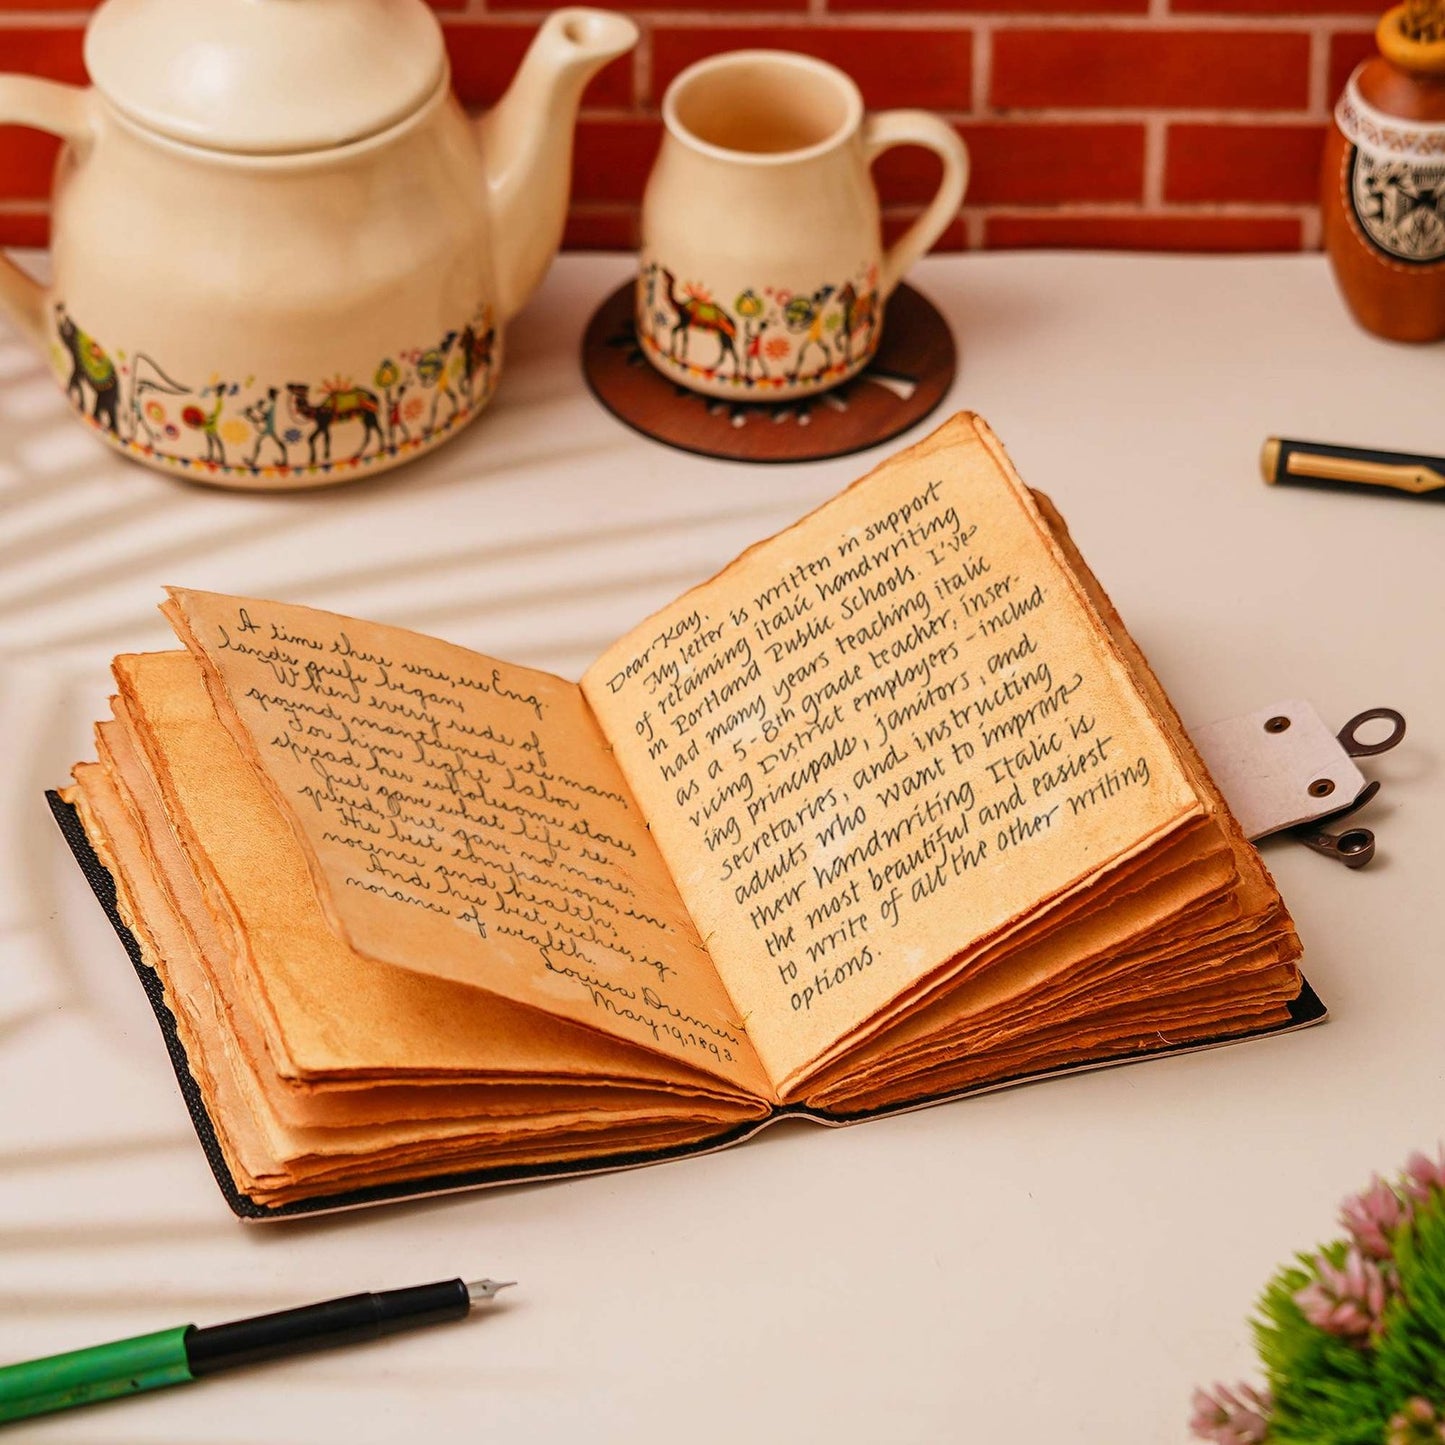 A time there was, ere Eng.
land's griefs began,
When every rude of
ground maintained its man;
For him light labor
spread her wholesome store,
Just gave what life re-
quired, but gave no more:
His best companions, in-
nocence and health;
And his best riches, ig-
norance of wealth.
Louisa Diemer,
May 19, 1893.
Dear Kay,
My letter is written in support
of retaining italic handwriting
in Portland Public Schools. I've
had many years teaching italic
as a 5-8th grade teacher, inser-
vicing District employees - includ-
ing principals, janitors, and
secretaries, and instructing
adults who want to improve
their handwriting. Italic is
the most beautiful and easiest
to write of all the other writing
options.